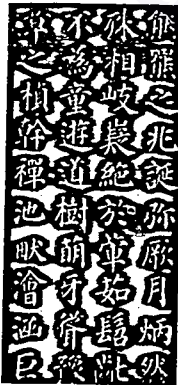 熊羆之兆誕弥厥月炳然
殊相岐嶷絕於葷茹髫齔
不為童遊道樹萌牙聳豫
章之楨幹禪池畎澮涵巨